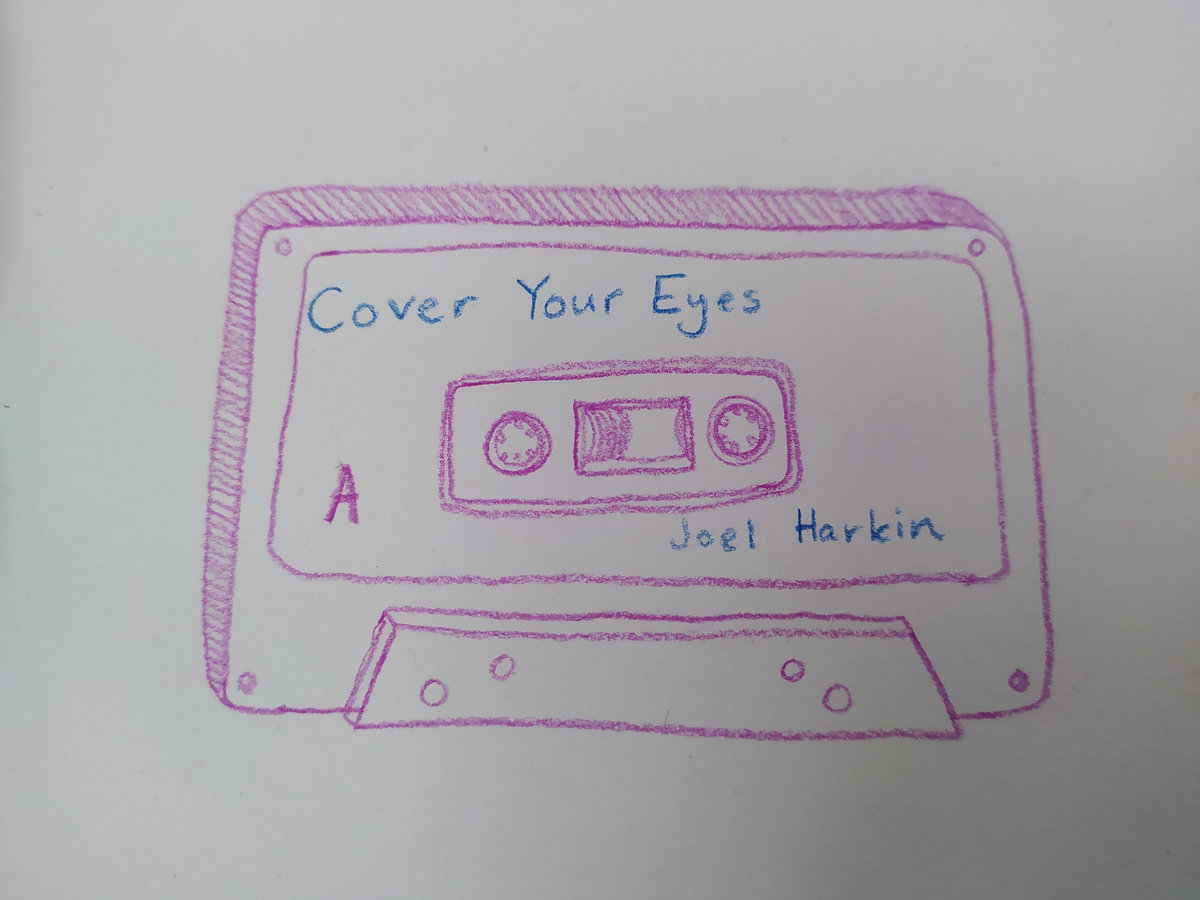 Cover Your Eyes
A
Joel Harkin